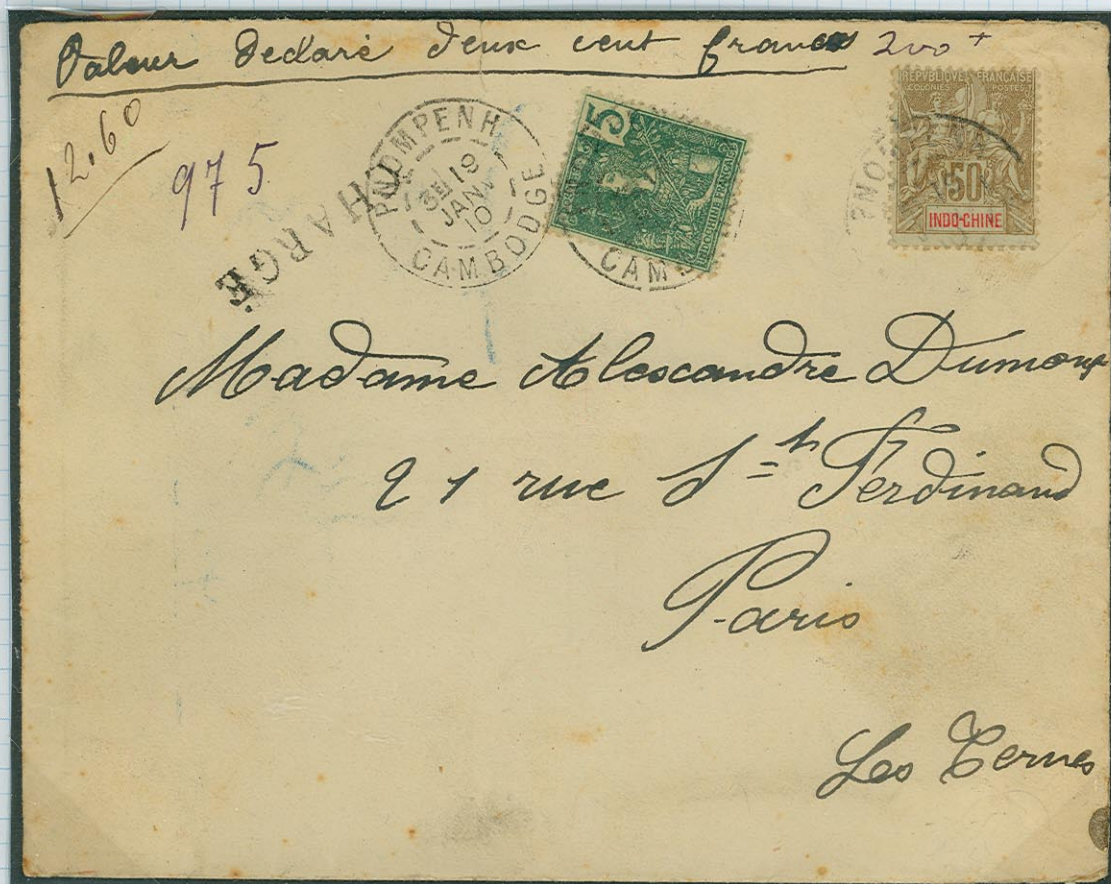 Valeur Declaré deux cent francs 200 +
12.60
975
CHARGÉ
PNOMPENH
3E/19
JANV
10
CAMBODGE
5
INDOCHINE FRANÇAISE
CAMB
REPVBLIQVE FRANÇAISE
COLONIES POSTES
50
INDO-CHINE
Madame Alexandre Dumoux
21 rue St Ferdinand
Paris
Les Ternes